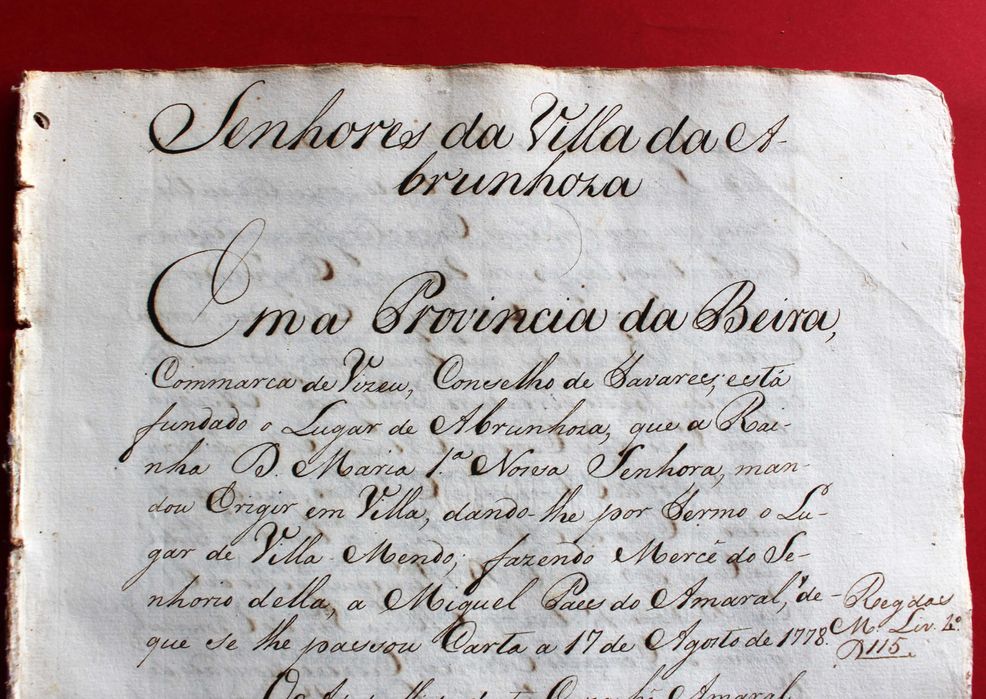 Senhores da Villa da A-
brunhoza
Em a Provincia da Beira,
Commarca de Vizeu, Conselho de Tavares, está
fundado o Lugar de Abrunhoza, que a Rai-
nha D. Maria 1.ª Nossa Senhora, man-
dou Erigir em Villa, dando-lhe por Termo o Lu-
gar de Villa Mendo; fazendo Mercê do Se-
nhorio della, a Miguel Paes do Amaral, de-
que se lhe passou Carta a 17 de Agosto de 1778
Reg. das
M.es Liv. 2º
115.
Amaral